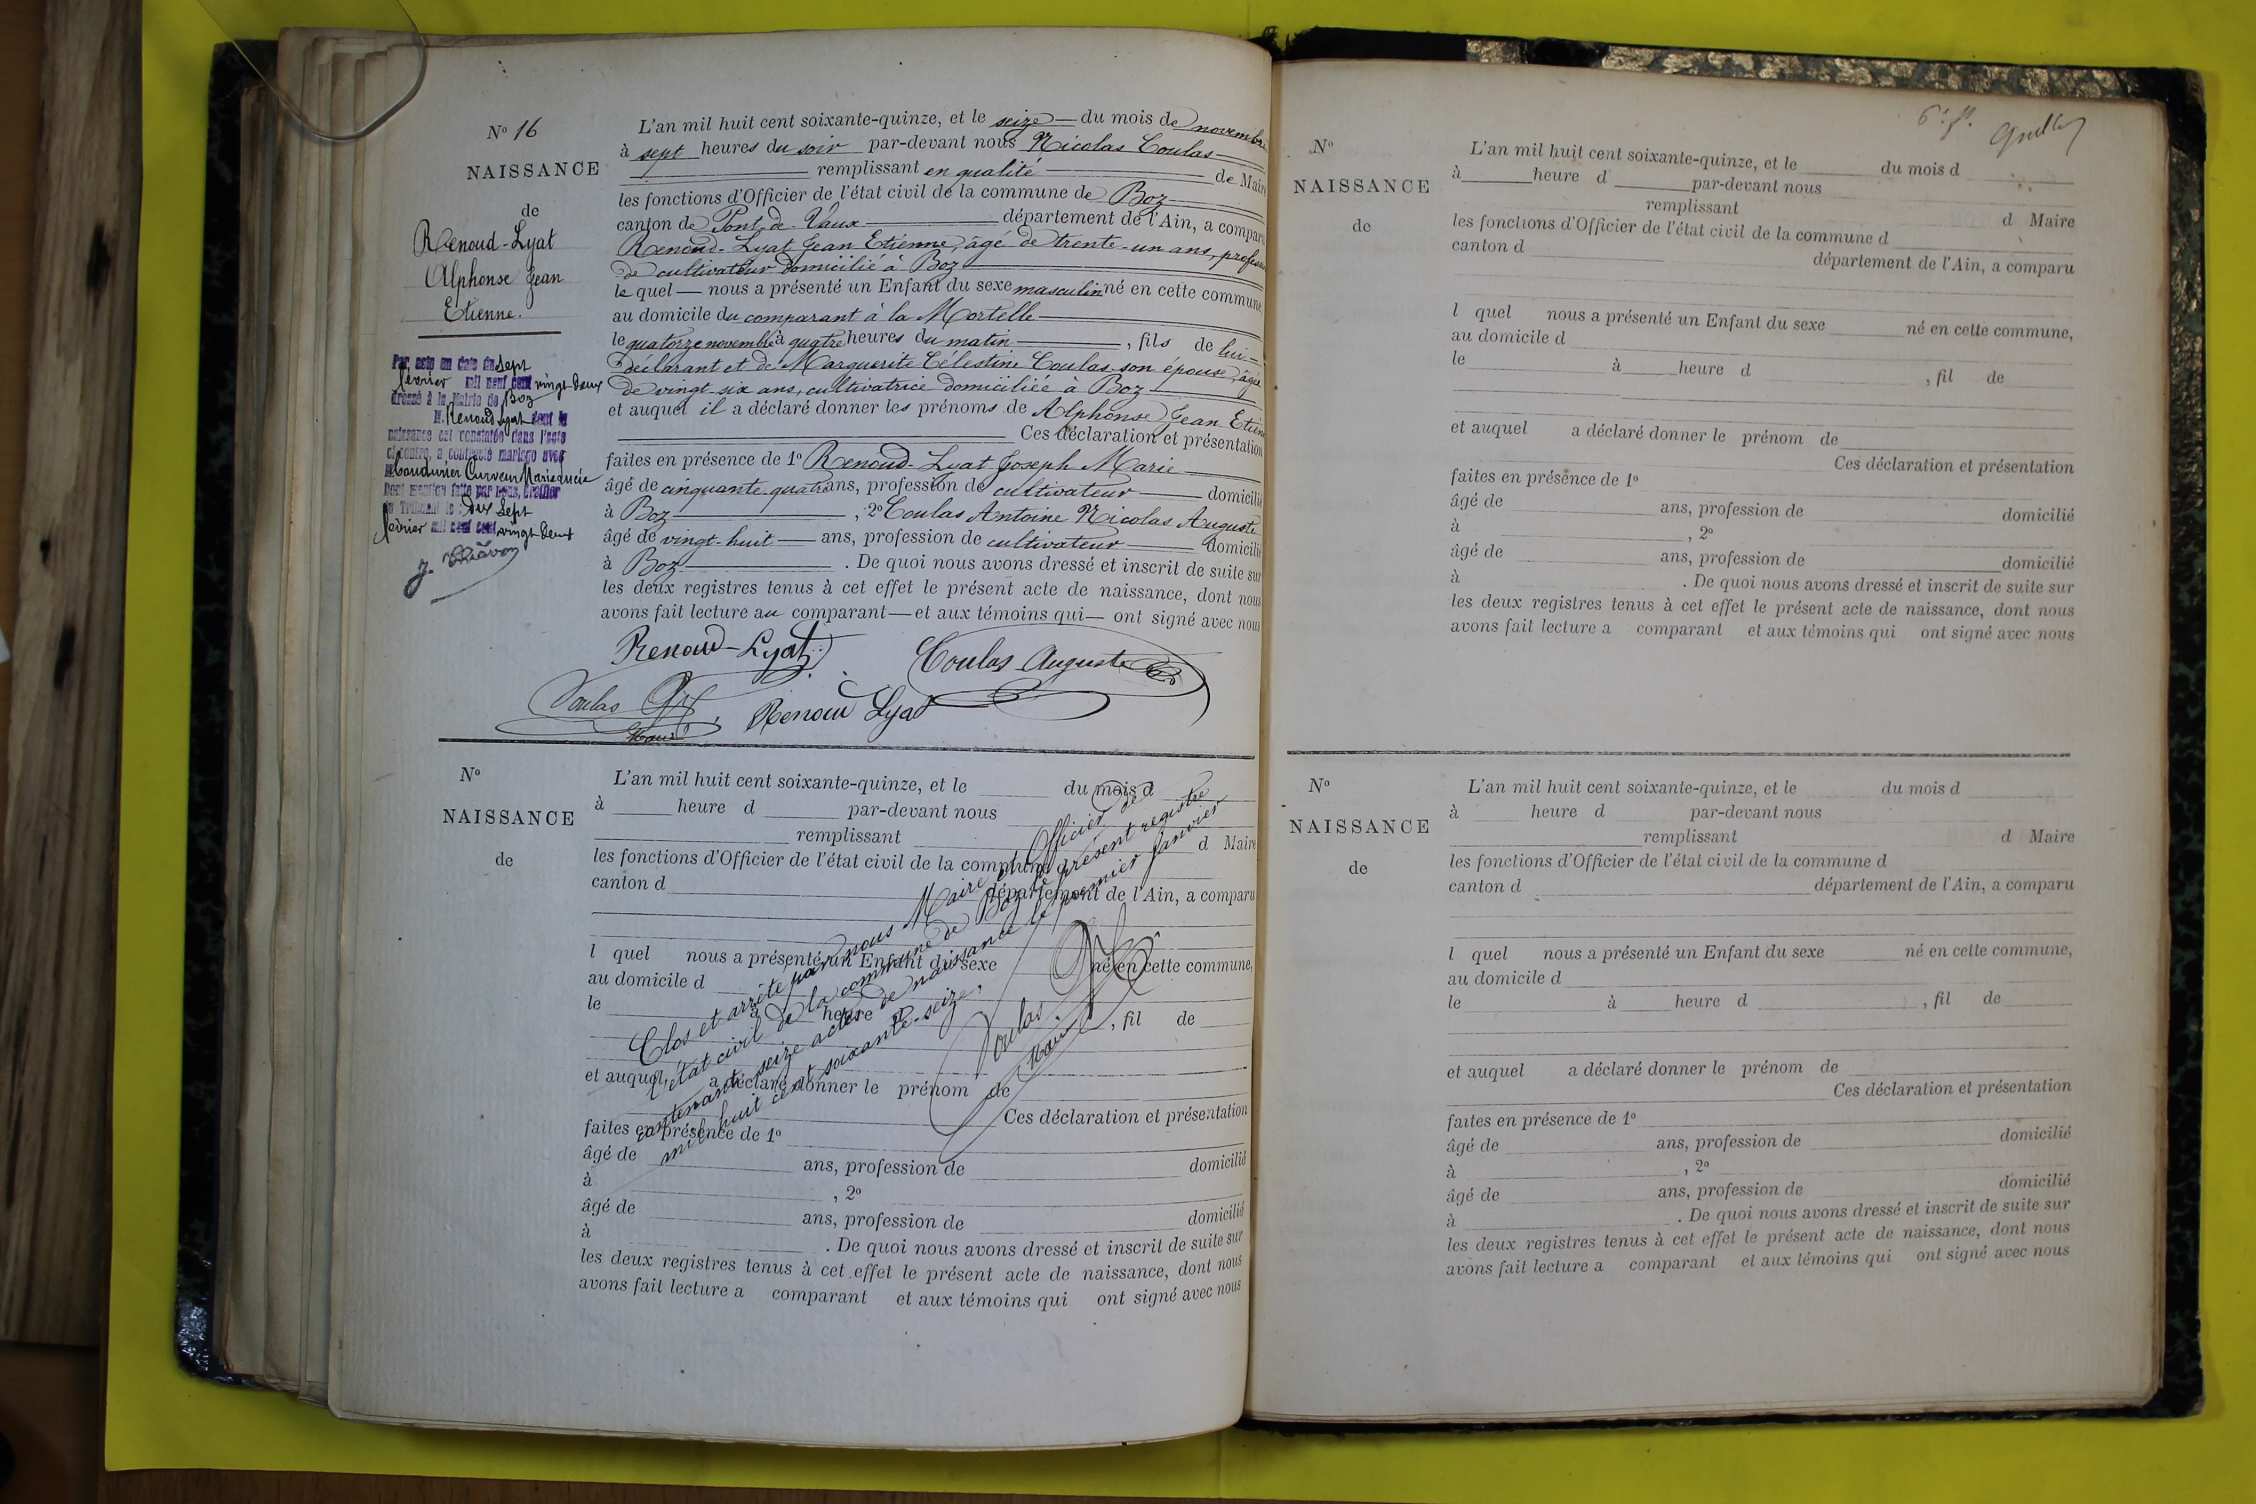 N° 16
NAISSANCE
de
Renoud-Lyat
Alphonse Jean
Etienne.
Par acte en date du Sept
février mil neuf cent vingt deux
dressé à la Mairie de Boz
M. Renoud Lyat dont la
naissance est constatée dans l'acte
ci contre, a contracté mariage avec
Marie Lucie
Dont mention faite par nous, Greffier
du Tribunal le dix Sept
février mil neuf cent vingt deux
L'an mil huit cent soixante-quinze, et le seize du mois de novembre
à sept heures du soir par-devant nous Nicolas Coulas
remplissant en qualité de Maire
les fonctions d'Officier de l'état civil de la commune de Boz
canton de Pont-de-Vaux département de l'Ain, a comparu
Renoud-Lyat Jean Etienne, âgé de trente-un ans, profession
de cultivateur domicilié à Boz
lequel nous a présenté un Enfant du sexe masculin né en cette commune,
au domicile du comparant à la Mortelle
le quatorze novembre à quatre heures du matin, fils de lui-
déclarant et de Marguerite Célestine Coulas son épouse, âgée
de vingt-six ans, cultivatrice domiciliée à Boz
et auquel il a déclaré donner les prénoms de Alphonse Jean Etienne
Ces déclaration et présentation
faites en présence de 1° Renoud-Lyat Joseph Marie
âgé de cinquante-quatre ans, profession de cultivateur domicilié
à Boz, 2° Coulas Antoine Nicolas Auguste
âgé de vingt-huit ans, profession de cultivateur domicilié
à Boz. De quoi nous avons dressé et inscrit de suite sur
les deux registres tenus à cet effet le présent acte de naissance, dont nous
avons fait lecture au comparant et aux témoins qui ont signé avec nous
Renoud-Lyat
Coulas Auguste
Coulas
Renoud Lyat
Maire
N°
NAISSANCE
de
L'an mil huit cent soixante-quinze, et le du mois d
à heure d par-devant nous
remplissant d Maire
les fonctions d'Officier de l'état civil de la commune d
canton d département de l'Ain, a comparu
l quel nous a présenté un Enfant du sexe né en cette commune,
au domicile d
le à heure d , fil de
et auquel a déclaré donner le prénom de
Ces déclaration et présentation
faites en présence de 1°
âgé de ans, profession de domicilié
à , 2°
âgé de ans, profession de domicilié
à . De quoi nous avons dressé et inscrit de suite sur
les deux registres tenus à cet effet le présent acte de naissance, dont nous
avons fait lecture a comparant et aux témoins qui ont signé avec nous
Clos et arrêté par nous Maire et Officier de
l'état civil de la commune de Boz le présent registre
contenant seize actes de naissance le premier janvier
mil huit cent soixante-seize.
Coulas
Maire
N°
NAISSANCE
de
L'an mil huit cent soixante-quinze, et le du mois d
à heure d par-devant nous
remplissant d Maire
les fonctions d'Officier de l'état civil de la commune d
canton d département de l'Ain, a comparu
l quel nous a présenté un Enfant du sexe né en cette commune,
au domicile d
le à heure d , fil de
et auquel a déclaré donner le prénom de
Ces déclaration et présentation
faites en présence de 1°
âgé de ans, profession de domicilié
à , 2°
âgé de ans, profession de domicilié
à . De quoi nous avons dressé et inscrit de suite sur
les deux registres tenus à cet effet le présent acte de naissance, dont nous
avons fait lecture a comparant et aux témoins qui ont signé avec nous
N°
NAISSANCE
de
L'an mil huit cent soixante-quinze, et le du mois d
à heure d par-devant nous
remplissant d Maire
les fonctions d'Officier de l'état civil de la commune d
canton d département de l'Ain, a comparu
l quel nous a présenté un Enfant du sexe né en cette commune,
au domicile d
le à heure d , fil de
et auquel a déclaré donner le prénom de
Ces déclaration et présentation
faites en présence de 1°
âgé de ans, profession de domicilié
à , 2°
âgé de ans, profession de domicilié
à . De quoi nous avons dressé et inscrit de suite sur
les deux registres tenus à cet effet le présent acte de naissance, dont nous
avons fait lecture a comparant et aux témoins qui ont signé avec nous